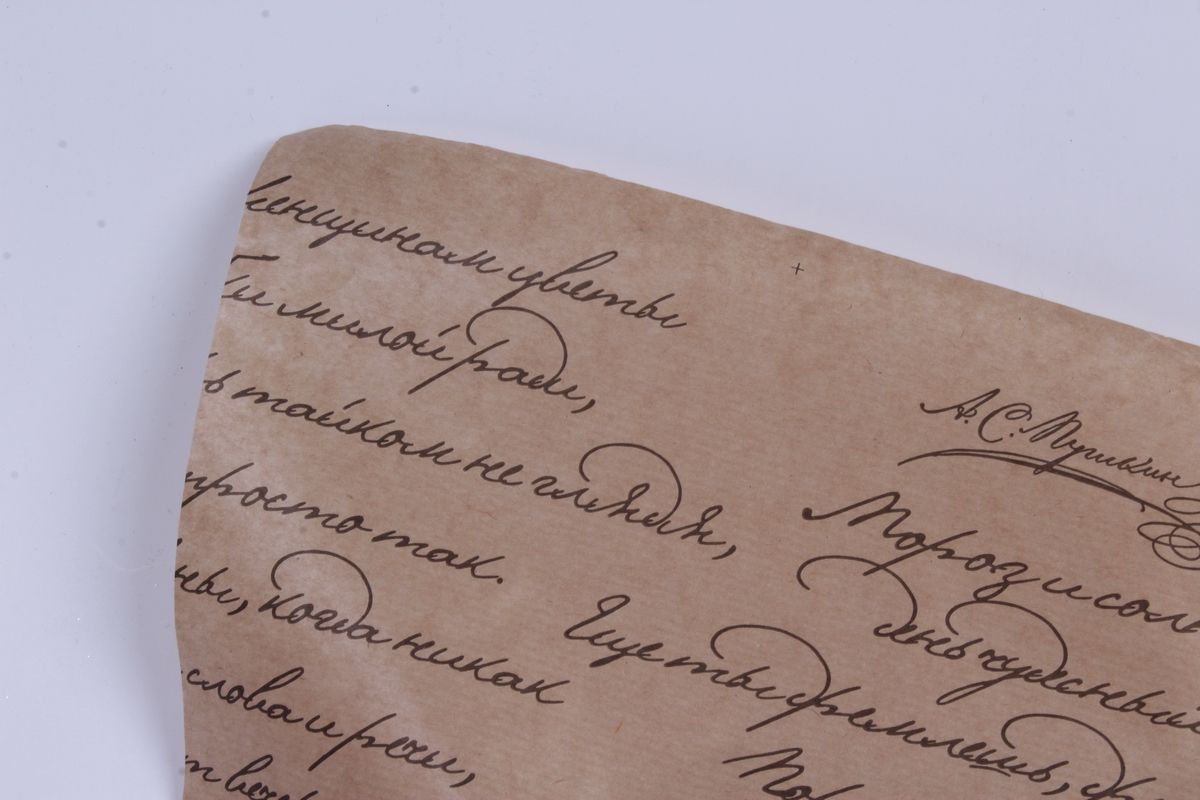 женщинам цветы
милой ради,
ь тайком не глядя,
просто так.
ны, когда никак
слова и речи,
т вече
А.С. Пушкин
Мороз и солн
день чудесный
Еще ты дремлешь, др
Пор